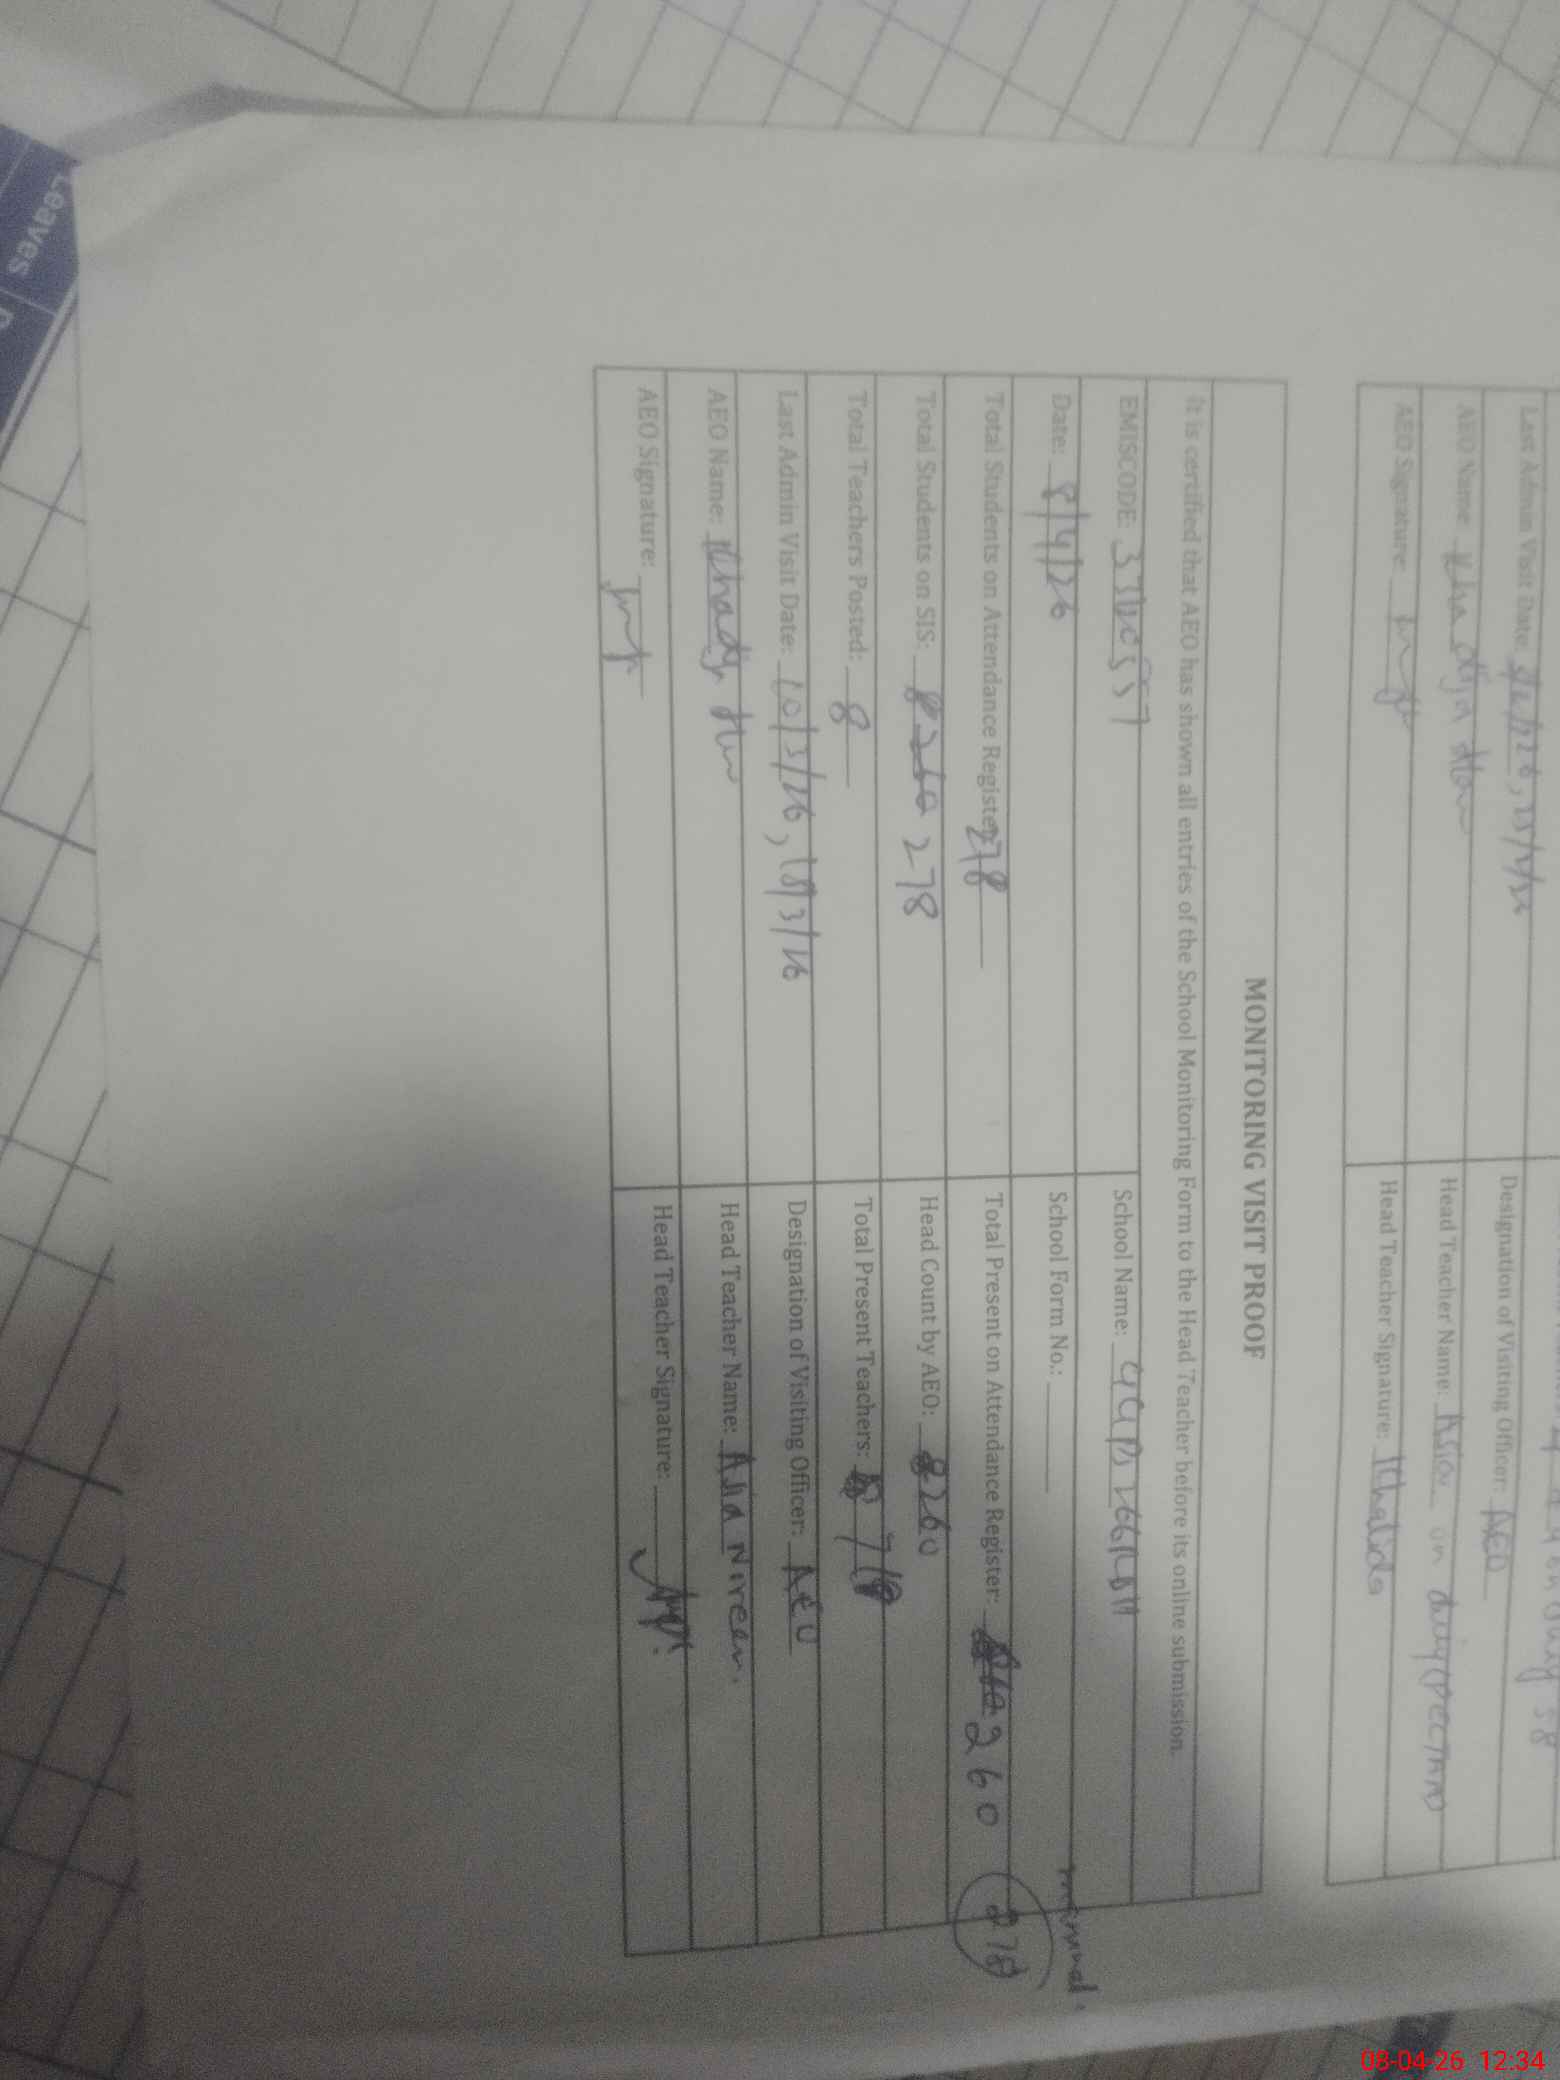 Leaves
Last Admin Visit Date:
Designation of Visiting Officer: AEO
AEO Name: Khadija
Head Teacher Name: Asia on duty (PECTAA)
AEO Signature:
Head Teacher Signature: Khalida
MONITORING VISIT PROOF
It is certified that AEO has shown all entries of the School Monitoring Form to the Head Teacher before its online submission.
EMISCODE:
School Name:
Date: 8/4/26
School Form No.:
Total Students on Attendance Register: 278
Total Present on Attendance Register: 260
278
Total Students on SIS: 278
Head Count by AEO: 260
Total Teachers Posted: 8
Total Present Teachers: 7/8
Last Admin Visit Date: 10/3/26, 18/3/26
Designation of Visiting Officer: AEO
AEO Name: Khadija
Head Teacher Name: Asia Nireen.
AEO Signature:
Head Teacher Signature:
08-04-26 12:34